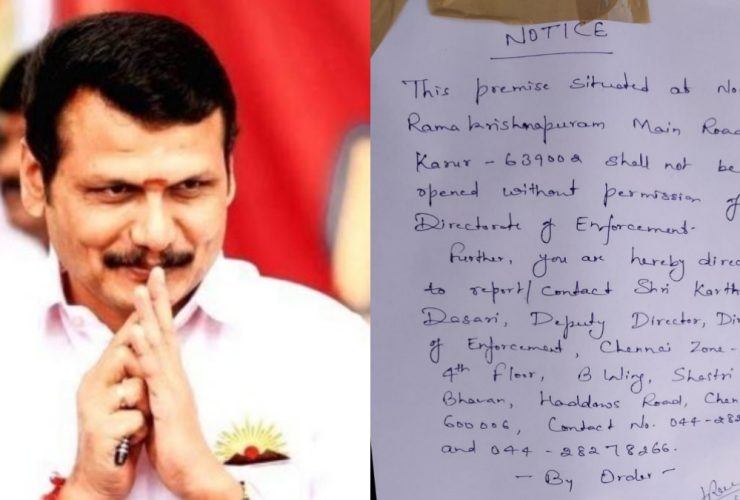 NOTICE
This premise situated at No
Ramakrishnapuram Main Road
Karur - 639002 shall not be
opened without permission of
Directorate of Enforcement.
Further, you are hereby direc
to report/contact Shri Karth
Dasari, Deputy Director, Dir
of Enforcement, Chennai Zone-
4th Floor, B Wing, Shastri
Bhavan, Haddows Road, Chen
600006, Contact No. 044-282
and 044 - 28278266.
- By Order -